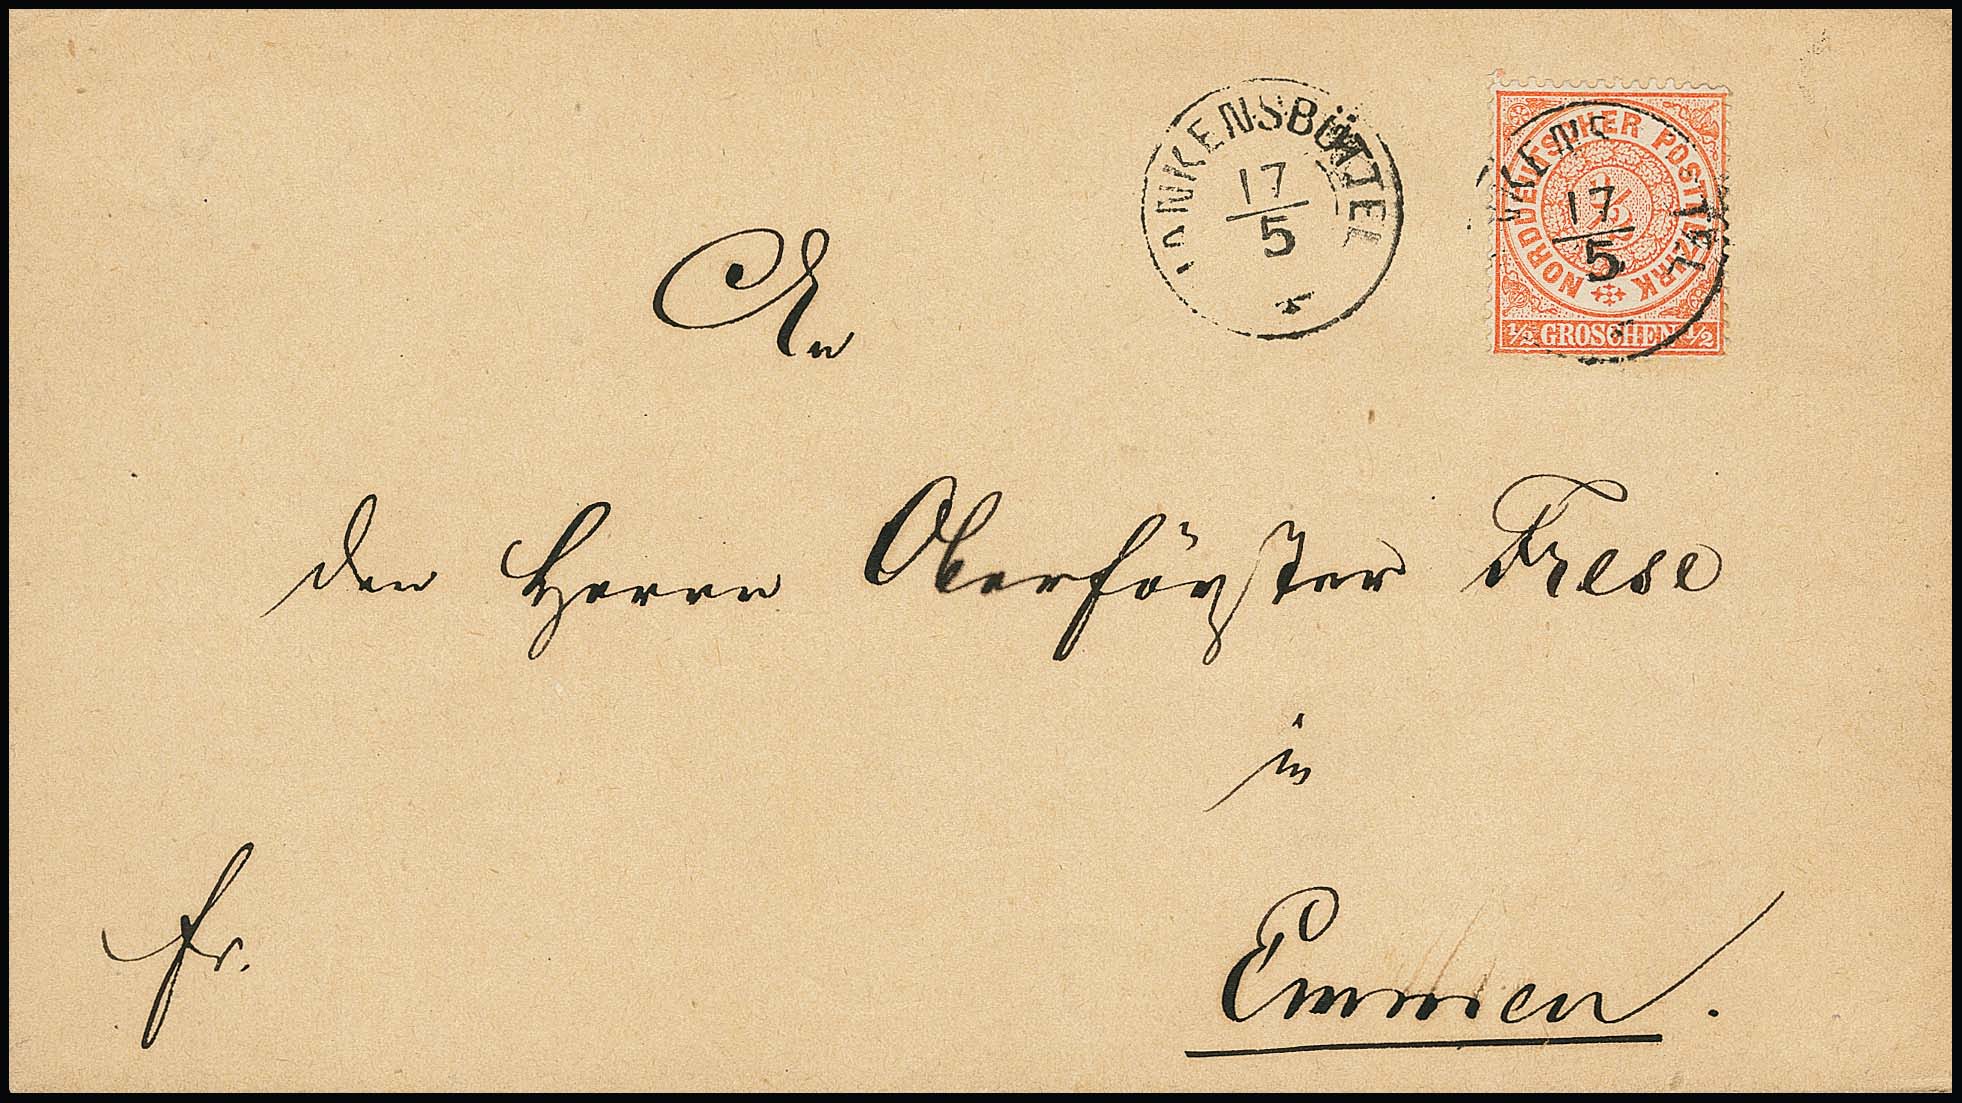 HANKENSBÜTTEL
17
5
NORDDEUTSCHER POSTBEZIRK
1/2
1/2 GROSCHEN 1/2
17
5
An
den Herrn Oberförster Frese
in
fr.
Emmen.